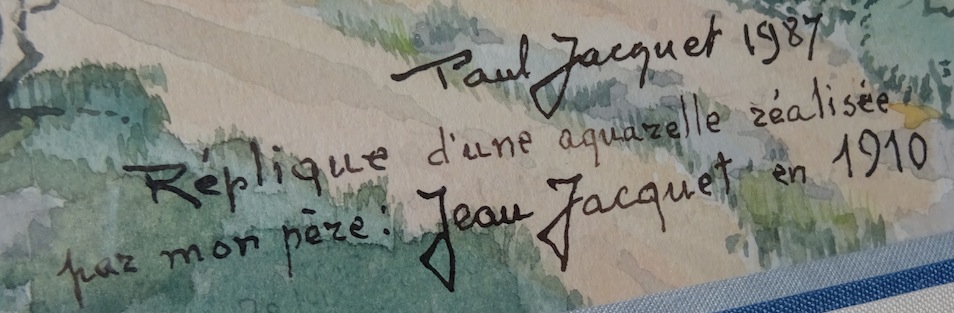 Paul Jacquet 1987
Réplique d'une aquarelle réalisée
par mon père: Jean Jacquet en 1910